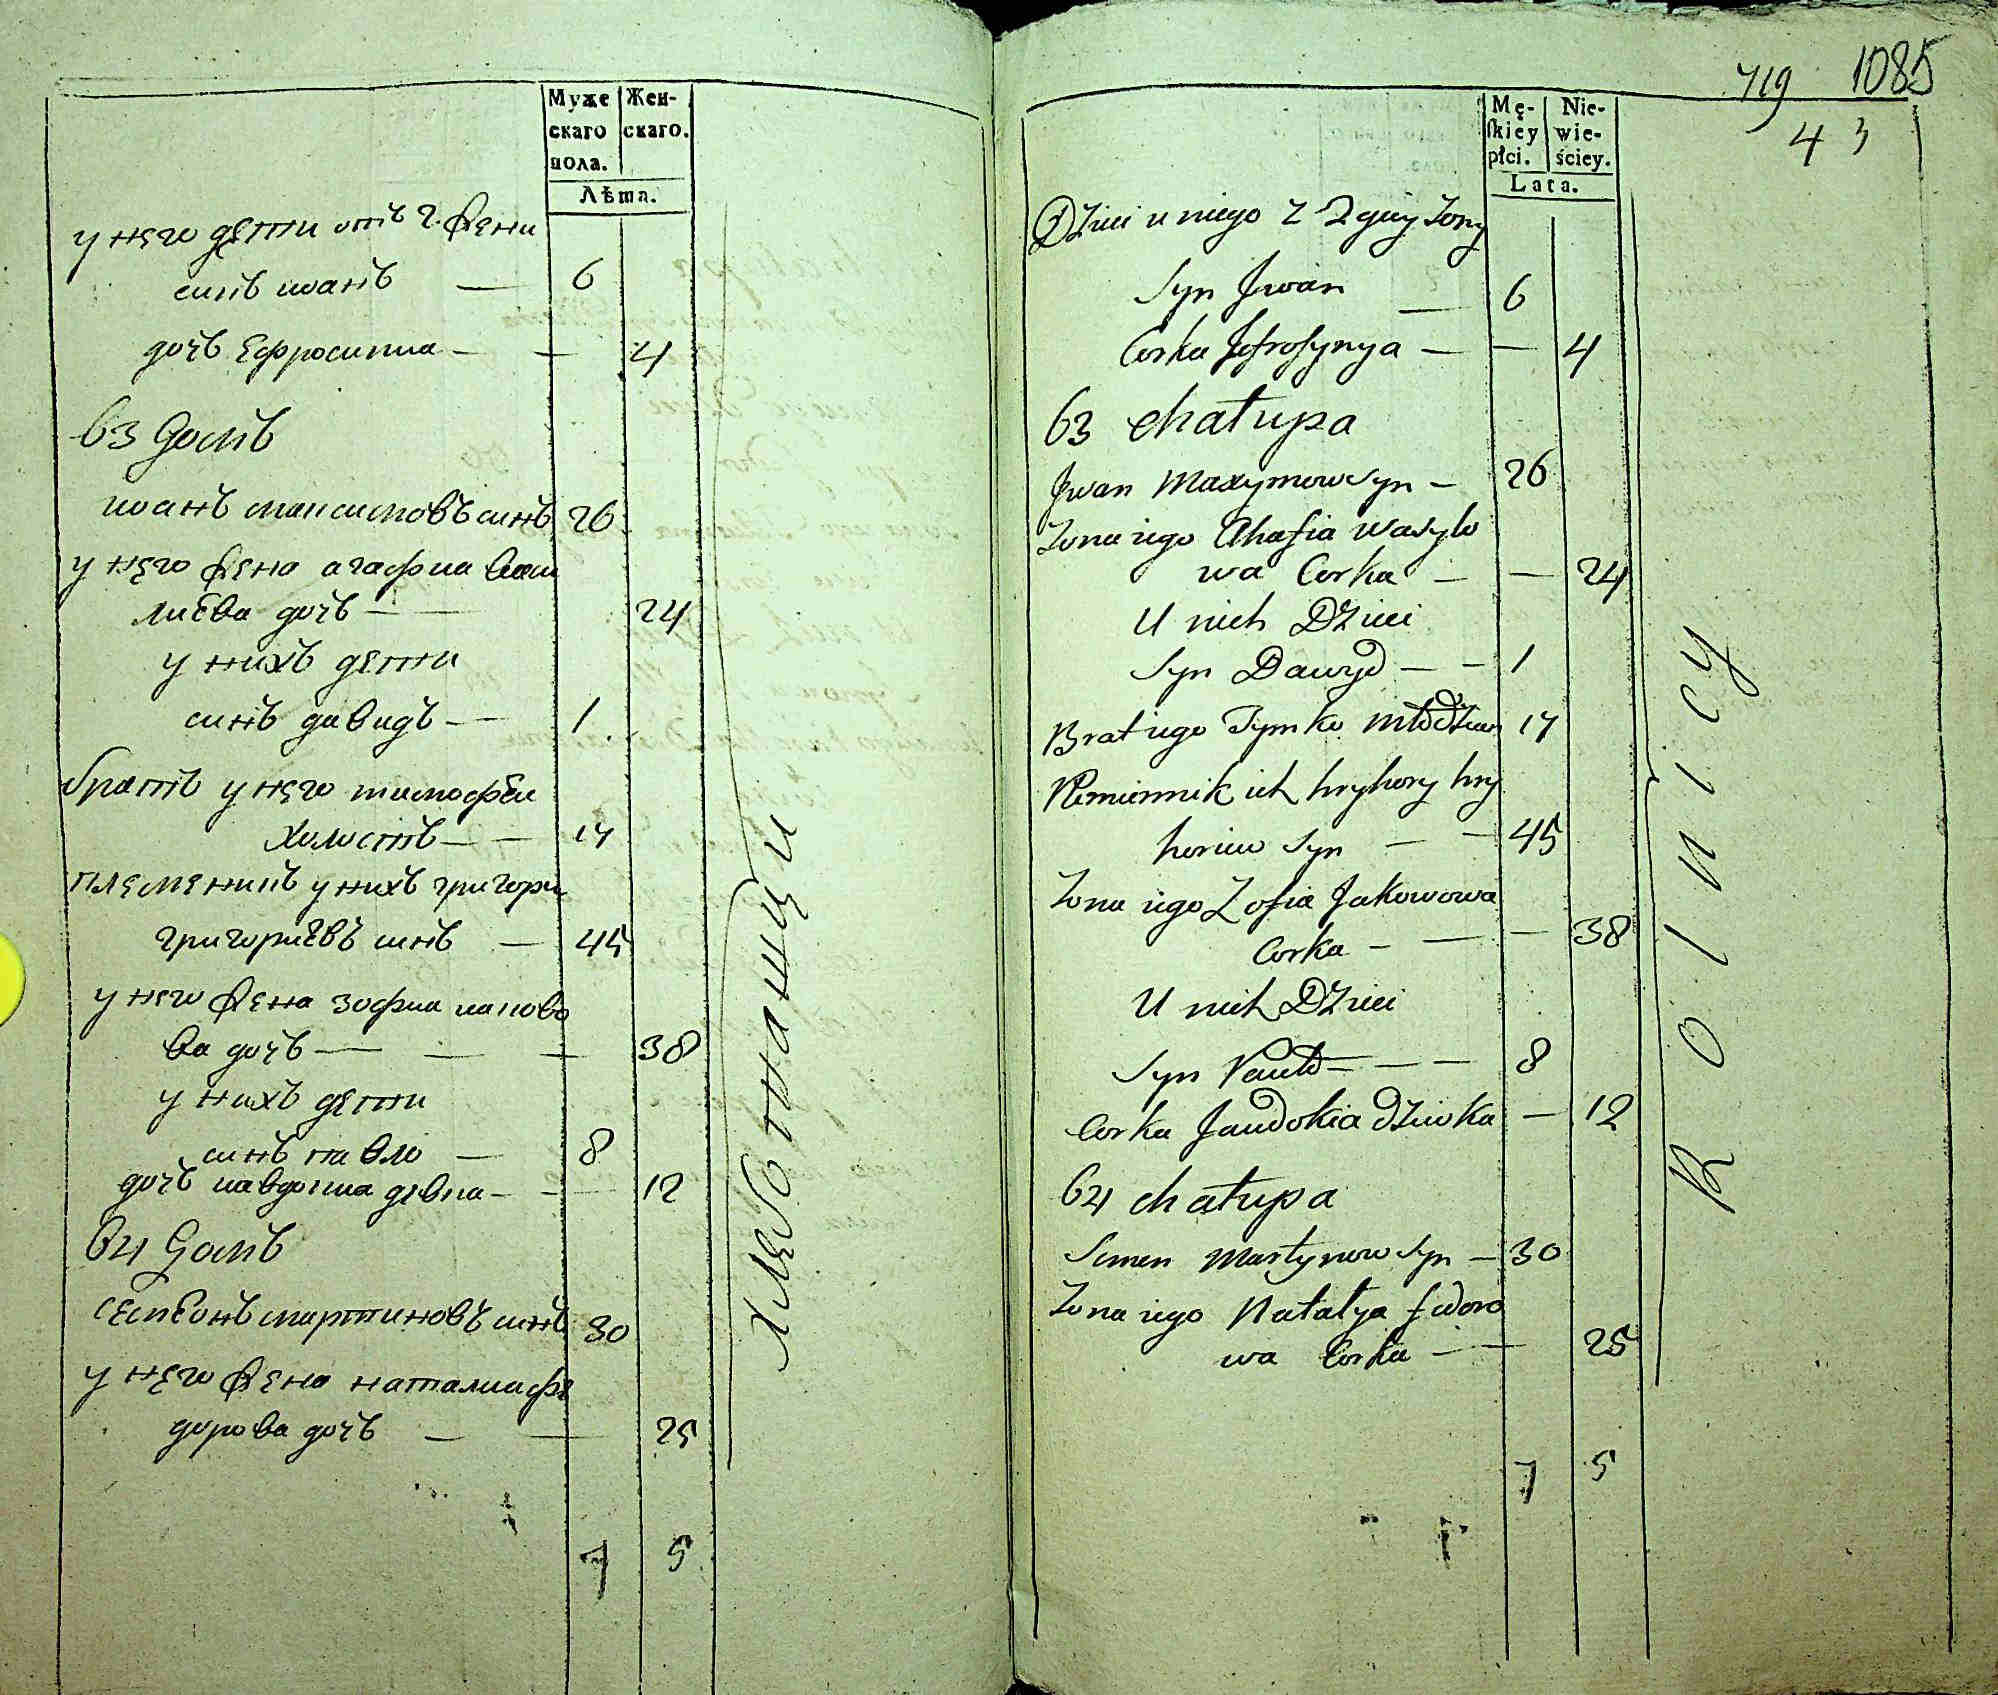 Муже
скаго
пола.
Жен-
скаго.
Лѣта.
у него дети отъ 2. жени
синъ иоанъ — 6
дочъ Ефросиниа — — 4
63 домъ
иоанъ максимовъ синъ 26
у него жена агафиа васи
лиева дочъ — 24
у нихъ дети
синъ давидъ — 1
братъ у него тимофеи
холостъ — — 17
племеникъ у нихъ григори
григориевъ синъ — 45
у него жена зофиа иаково
ва дочъ — — — 38
у нихъ дети
синъ павло — 8
дочъ иавдокиа девка — — 12
64 домъ
семеонъ мартиновъ синъ 30
у него жена наталиа фе
дорова дочъ — — 25
7 5
хлебопашци
719 1085
43
Mę-
ſkiey
płci.
Nie-
wie-
ściey.
Lata.
Dzieci u niego z 2giey żony
Syn Jwan — 6
Corka Jefrosynya — — 4
63 chałupa
Jwan Maxymow Syn — 26
Żona iego Ahafia Wasylo
wa Corka — — 24
U nich Dzieci
Syn Dawyd — — 1
Brat iego Tymko młodzian 17
Plemiennik ich hryhory hry
horiew Syn — — 45
Żona iego Zofia Jakowowa
Corka — — — 38
U nich Dzieci
Syn Pawło — — — 8
Corka Jawdokia dziewka — 12
64 chałupa
Semen Martynow Syn — 30
Żona iego Natalya fedoro
wa Corka — — 25
7 5
Rolnicy